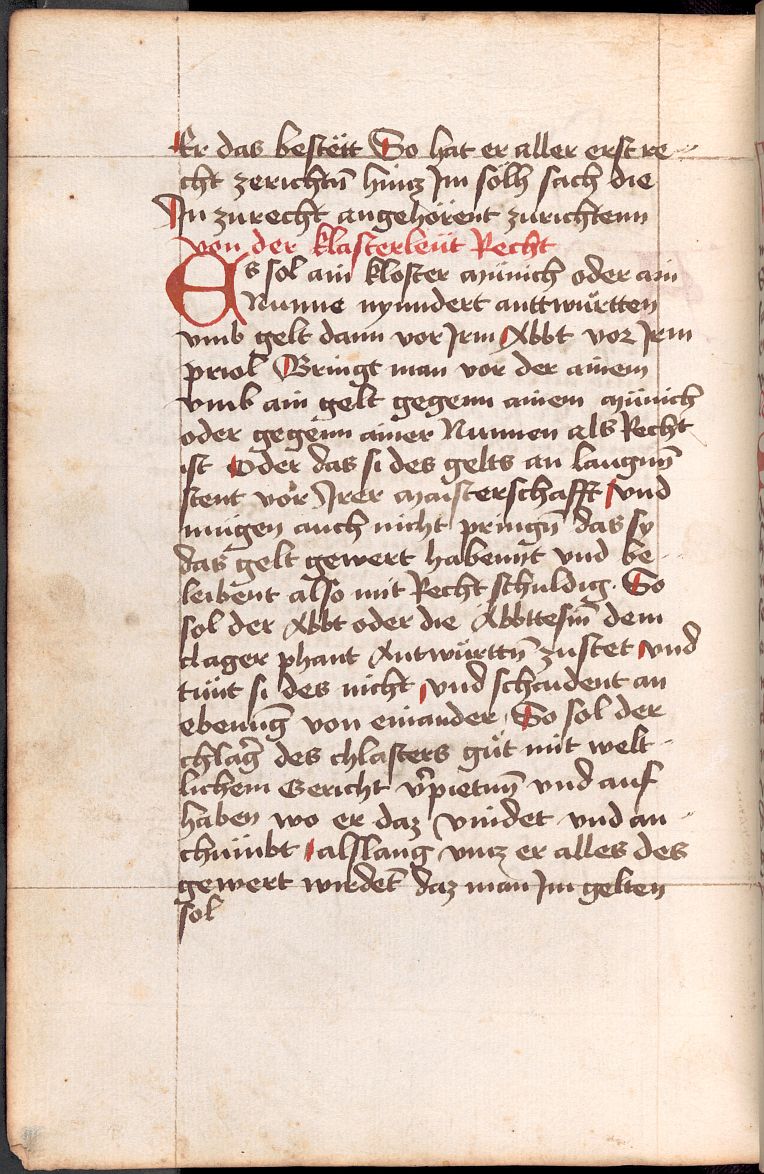 Er das bestëtt So hat er aller erst re-
cht zerichtn̄ hinz Im sölh sach die
In zurecht angehörent zurichtenn
von der klasterleüt Recht
Es sol ain kloster münich oder ain
Nunne nyndert anttwürtten
vmb gelt dann vor Irm Abbt vor Irm
priol Bringt man vor der ainem
vmb ain gelt gegenn ainem münich
oder gegenn ainer Nunnen als Recht
ist Oder das si des gelts an laugnn̄
stent vor Irer maisterschafft vnd
mügen auch nicht pringn̄ das sy
das gelt gewert habennt vnd be-
leibent also mit Recht schuldig. So
sol der Abbt oder die Abbttesin̄ dem
clager phant Antwürttn̄ zustet vnd
tünt si des nicht vnd schaident an
ebennḡ von einander So sol der
chlaḡ des chlasters güt mit welt-
lichem Gericht v̄pietnn̄ vnd auf
haben wo er daz vindet vnd an-
chümbt alslang vncz er alles des
gewert wirdet daz man Im gelten
sol